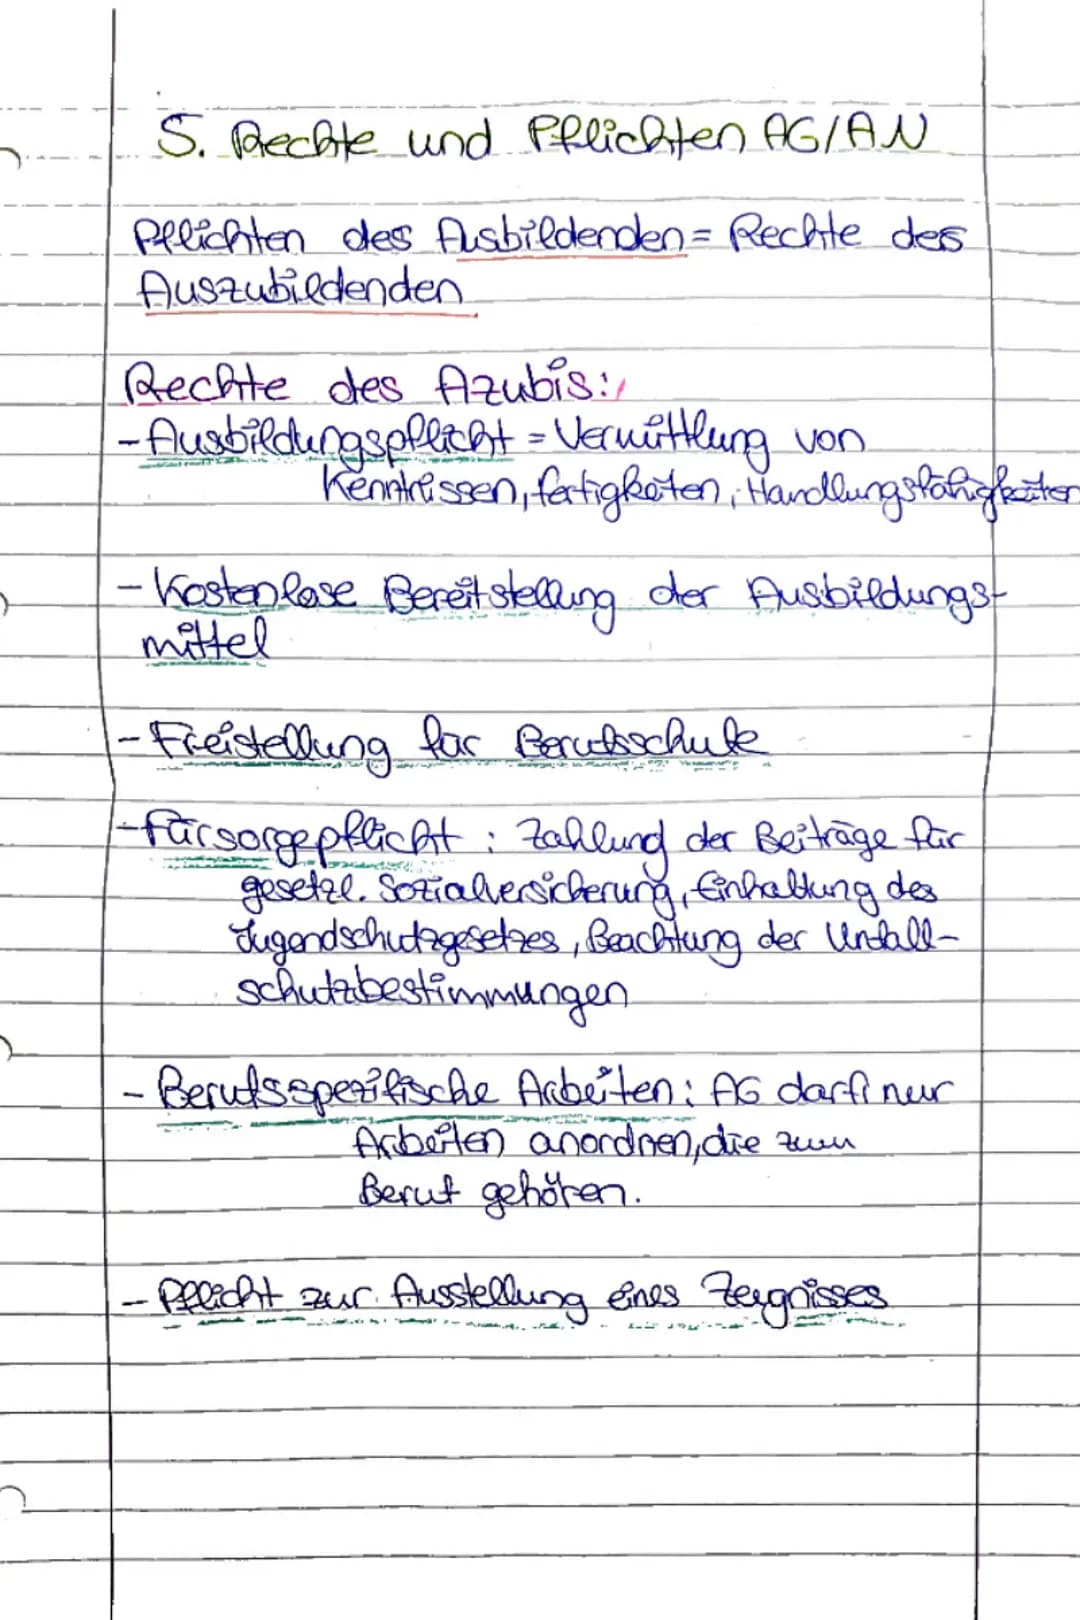 5. Rechte und Pflichten AG/AN
Pflichten des Ausbildenden = Rechte des
Auszubildenden
Rechte des Azubis:
- Ausbildungspflicht = Vermittlung von
Kenntnissen, fertigkeiten, Handlungsfähigkeiten
- Kostenlose Bereitstellung der Ausbildungs-
mittel
- Freistellung für Berufsschule
- Fürsorgepflicht : Zahlung der Beiträge für
gesetzl. Sozialversicherung, Einhaltung des
Jugendschutzgesetzes, Beachtung der Unfall-
schutzbestimmungen
- Berufsspezifische Arbeiten: AG darf nur
Arbeiten anordnen, die zum
Beruf gehören.
- Pflicht zur Ausstellung eines Zeugnisses